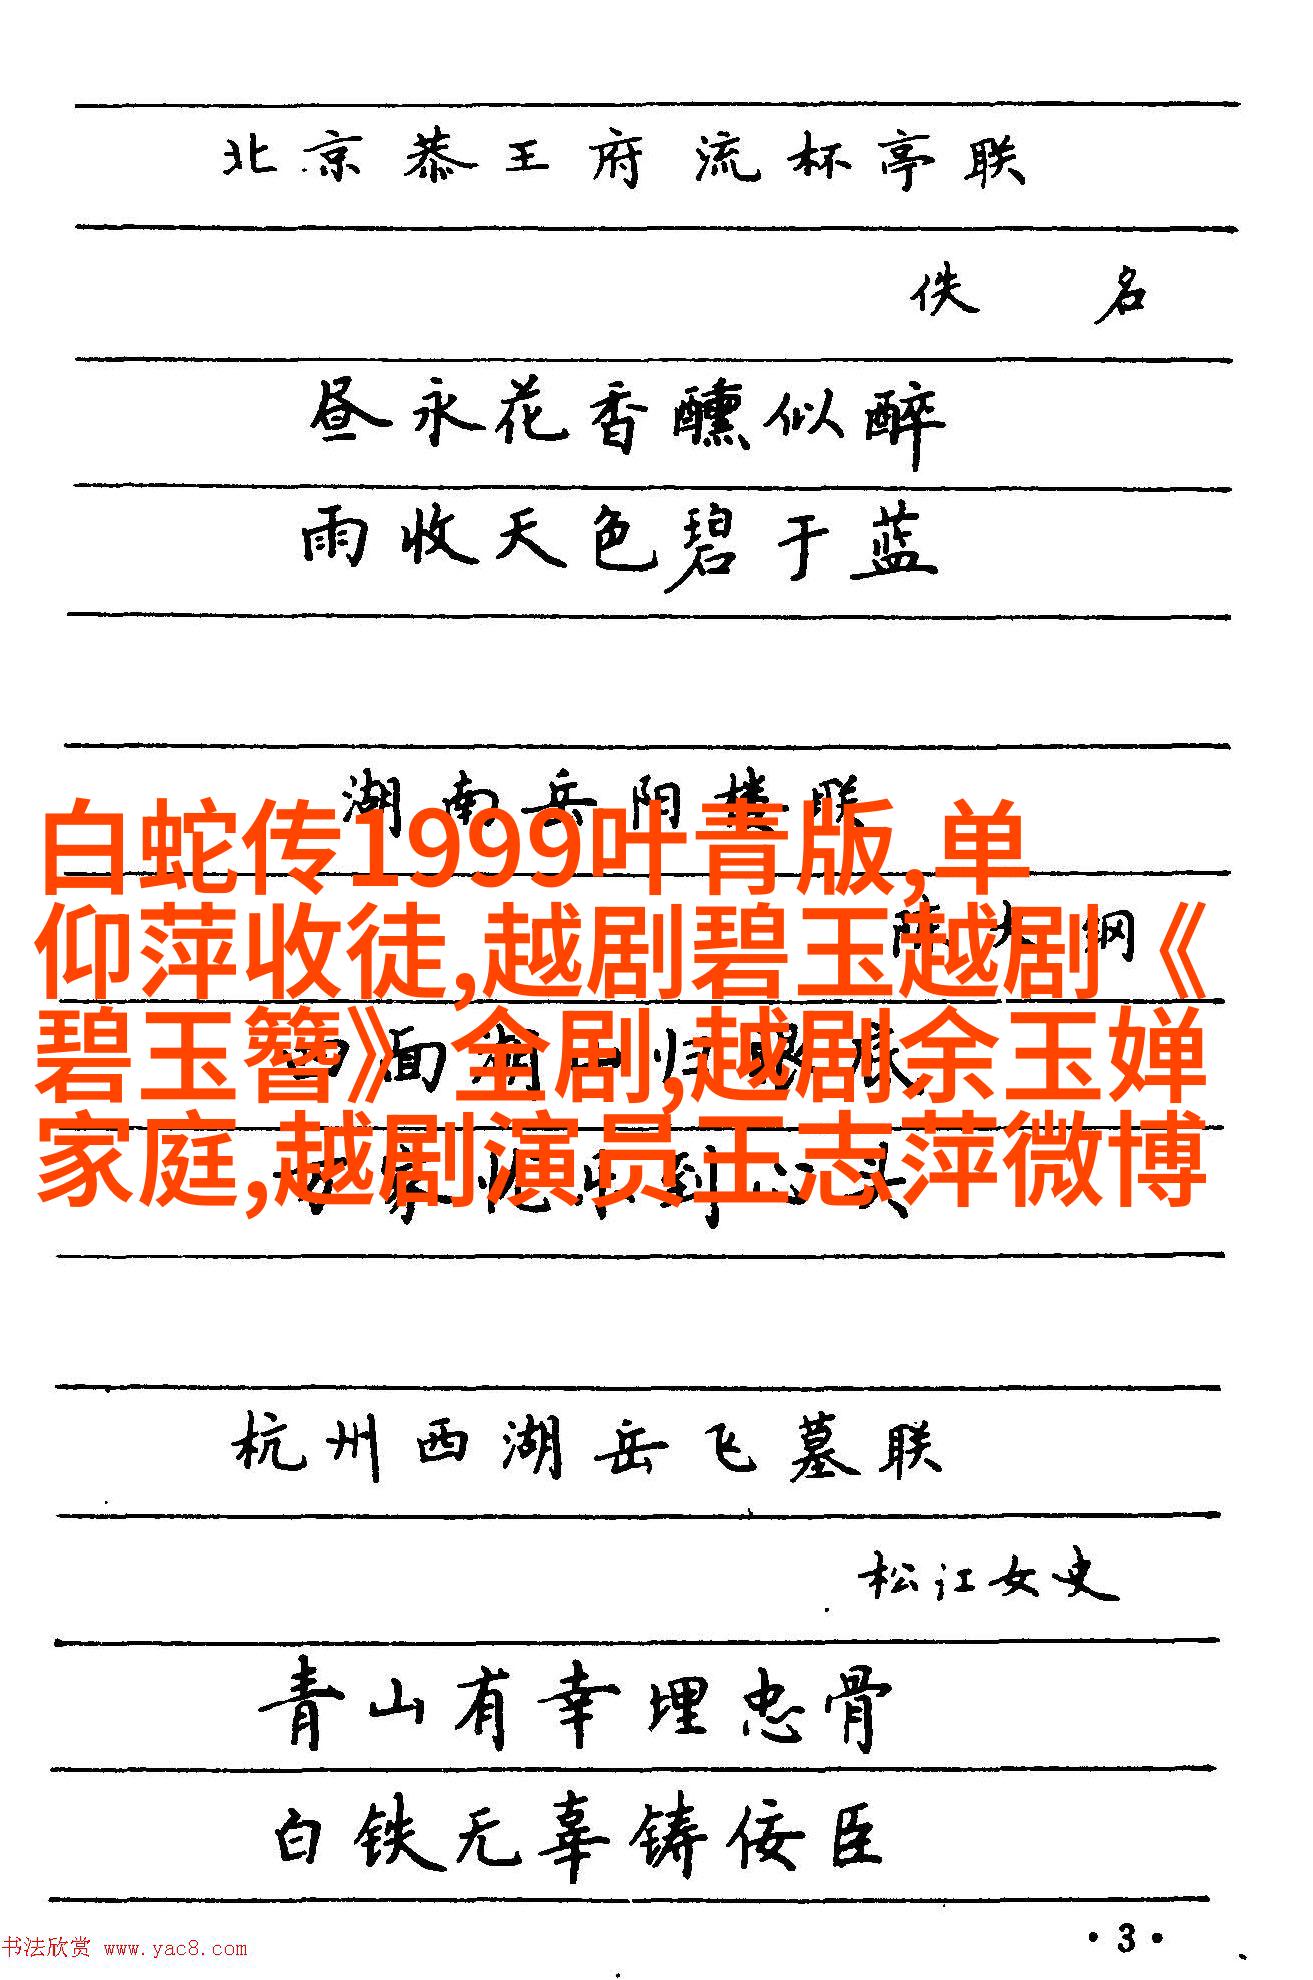 北京恭王府流杯亭联
佚 名
昼永花香醺似醉
雨收天色碧于蓝
湖南岳阳楼联
白蛇传1999叶青版,单
陈大纲
仰萍收徒,越剧碧玉越剧《
四面湖山归眼底
碧玉簪》全剧,越剧余玉婵
万家忧乐到心头
家庭,越剧演员王志萍微博
杭州西湖岳飞墓联
松江女史
青山有幸埋忠骨
白铁无辜铸佞臣
·3·
书法欣赏 www.yac8.com